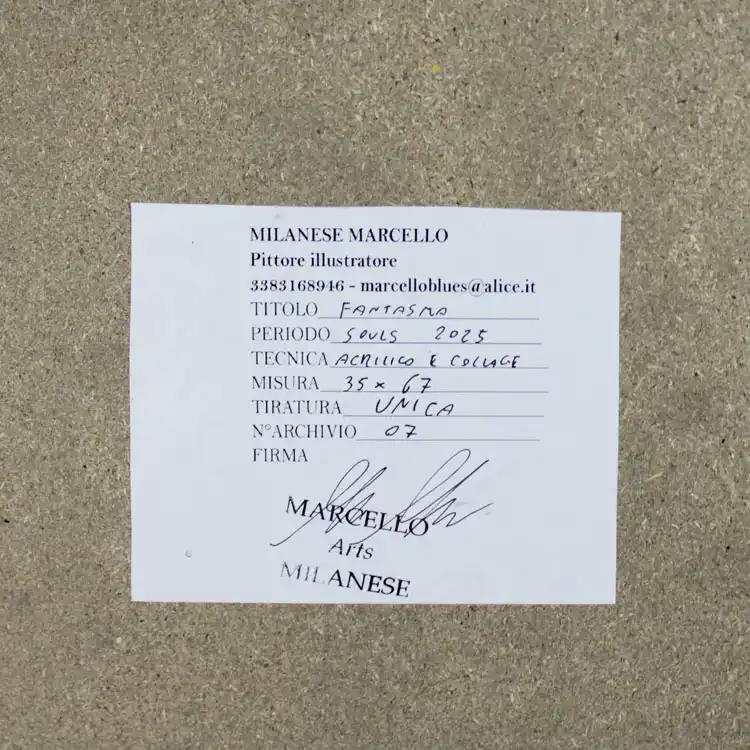 MILANESE MARCELLO
Pittore illustratore
3383168946 - marcelloblues@alice.it
TITOLO FANTASMA
PERIODO SOULS 2025
TECNICA ACRILICO E COLLAGE
MISURA 35 x 67
TIRATURA UNICA
N°ARCHIVIO 07
FIRMA
MARCELLO
Arts
MILANESE